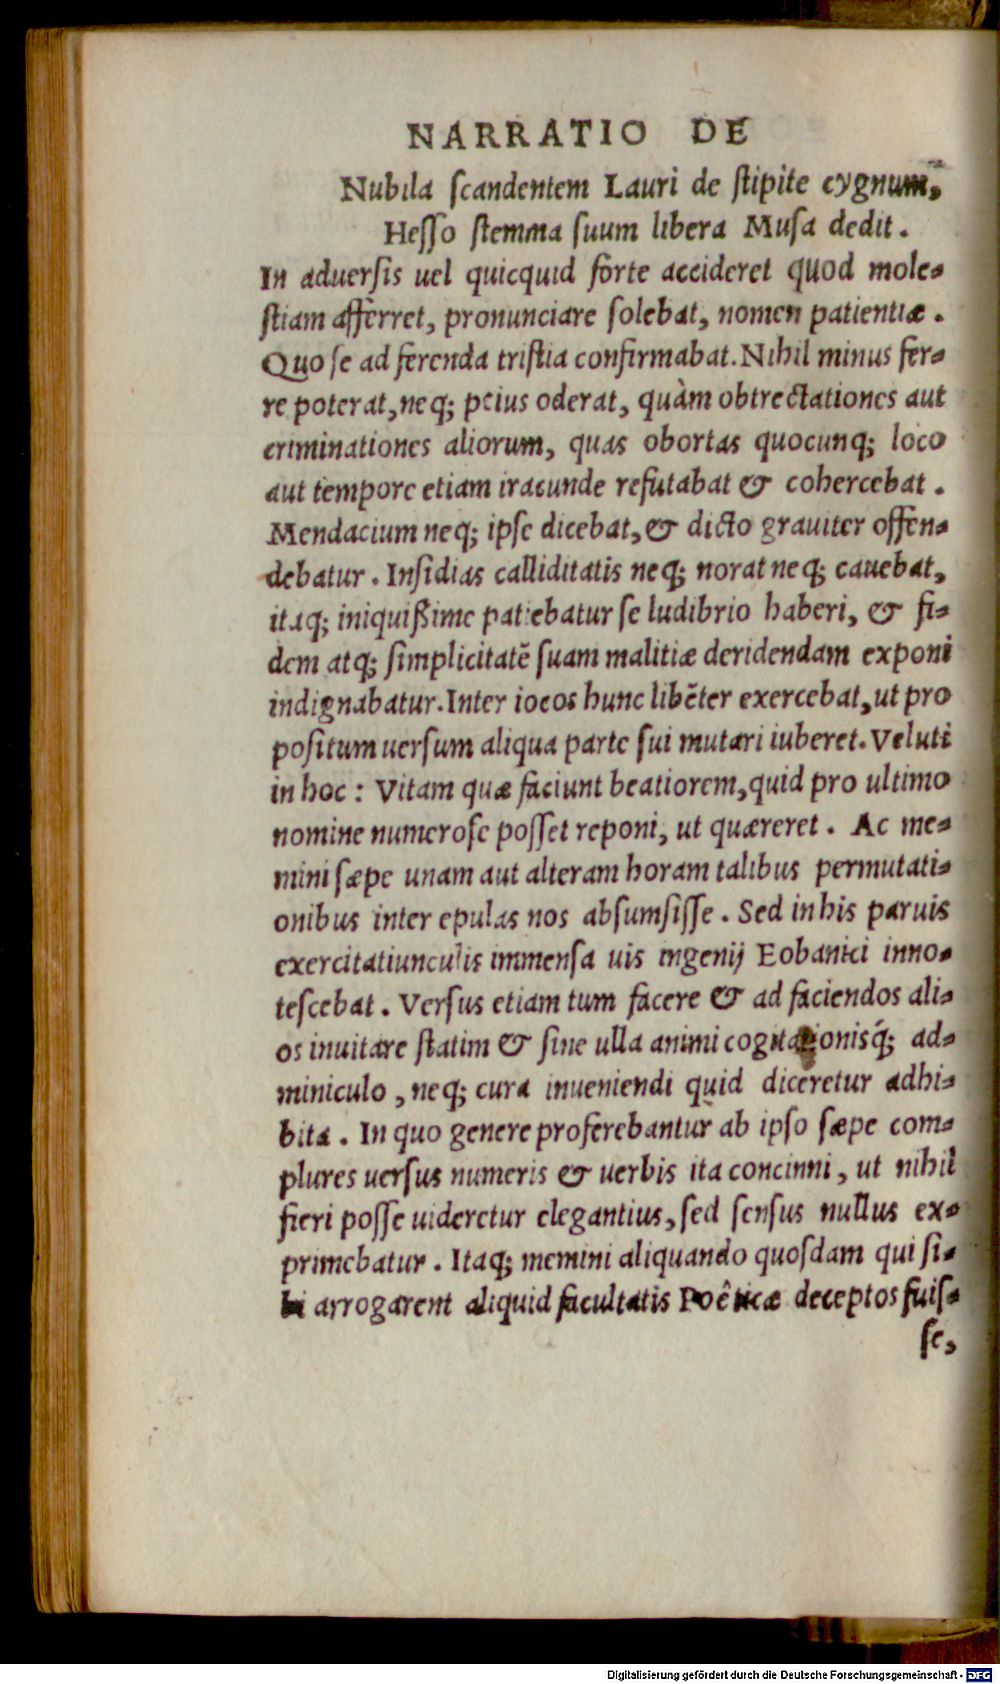 NARRATIO DE
Nubila ſcandentem Lauri de ſtipite cygnum,
Heſſo ſtemma ſuum libera Muſa dedit.
In aduerſis uel quicquid forte accideret quod mole-
ſtiam afferret, pronunciare ſolebat, nomen patientiæ.
Quo ſe ad ferenda triſtia confirmabat. Nihil minus fer-
re poterat, neq; peius oderat, quàm obtrectationes aut
criminationes aliorum, quas obortas quocunq; loco
aut tempore etiam iracunde refutabat & cohercebat.
Mendacium neq; ipſe dicebat, & dicto grauiter offen-
debatur. Inſidias calliditatis neq; norat neq; cauebat,
itaq; iniquißime patiebatur ſe ludibrio haberi, & fi-
dem atq; ſimplicitatē ſuam malitiæ deridendam exponi
indignabatur. Inter iocos hunc libēter exercebat, ut pro
poſitum uerſum aliqua parte ſui mutari iuberet. Veluti
in hoc: Vitam quæ faciunt beatiorem, quid pro ultimo
nomine numeroſe poſſet reponi, ut quæreret. Ac me-
mini ſæpe unam aut alteram horam talibus permutati-
onibus inter epulas nos abſumſiſſe. Sed in his paruis
exercitatiunculis immenſa uis ingenij Eobanici inno-
teſcebat. Verſus etiam tum facere & ad faciendos ali-
os inuitare ſtatim & ſine ulla animi cogitationisq́; ad-
miniculo, neq; cura inueniendi quid diceretur adhi-
bita. In quo genere proferebantur ab ipſo ſæpe com-
plures uerſus numeris & uerbis ita concinni, ut nihil
fieri poſſe uideretur elegantius, ſed ſenſus nullus ex-
primebatur. Itaq; memini aliquando quoſdam qui ſi-
bi arrogarent aliquid facultatis Poêticæ deceptos fuiſ-
ſe,
Digitalisierung gefördert durch die Deutsche Forschungsgemeinschaft - DFG